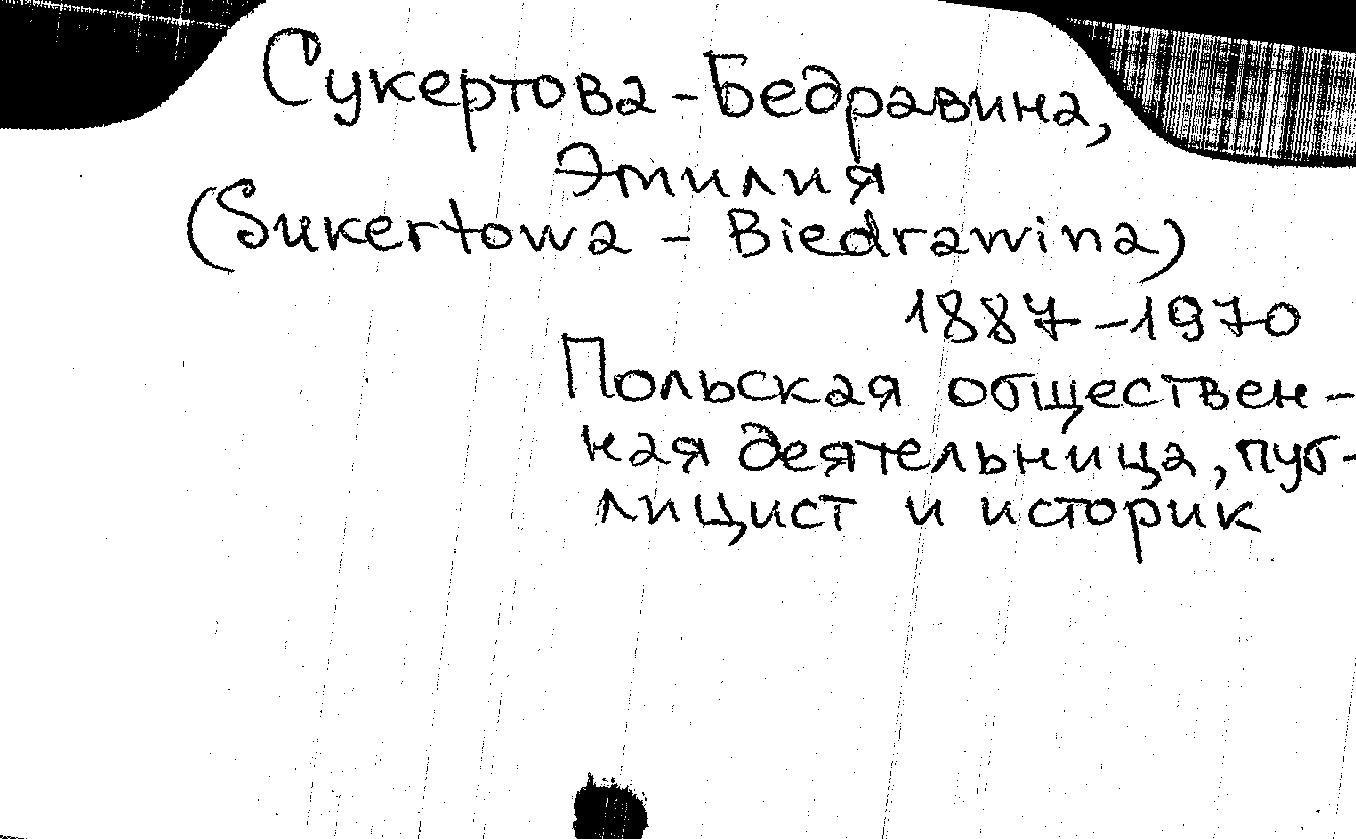 Сукертова-Бедравина,
Эмилия
(Sukertowa - Biedrawina)
1887-1970
Польская обществен-
ная деятельница, пуб-
лицист и историк